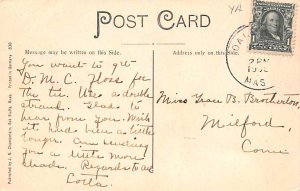 POST CARD
Message may be written on this Side.
Address only on this Side.
YA
You want to get
D. M. C. floss for
the tie. Use a double
strand. Glad to
hear from you. Wish
it had been a little
longer. Am sending
you a little more
thread. Regards to all
Lotta.
2 PM
MAS
Miss Grace B. Brotherton,
Milford,
Conn